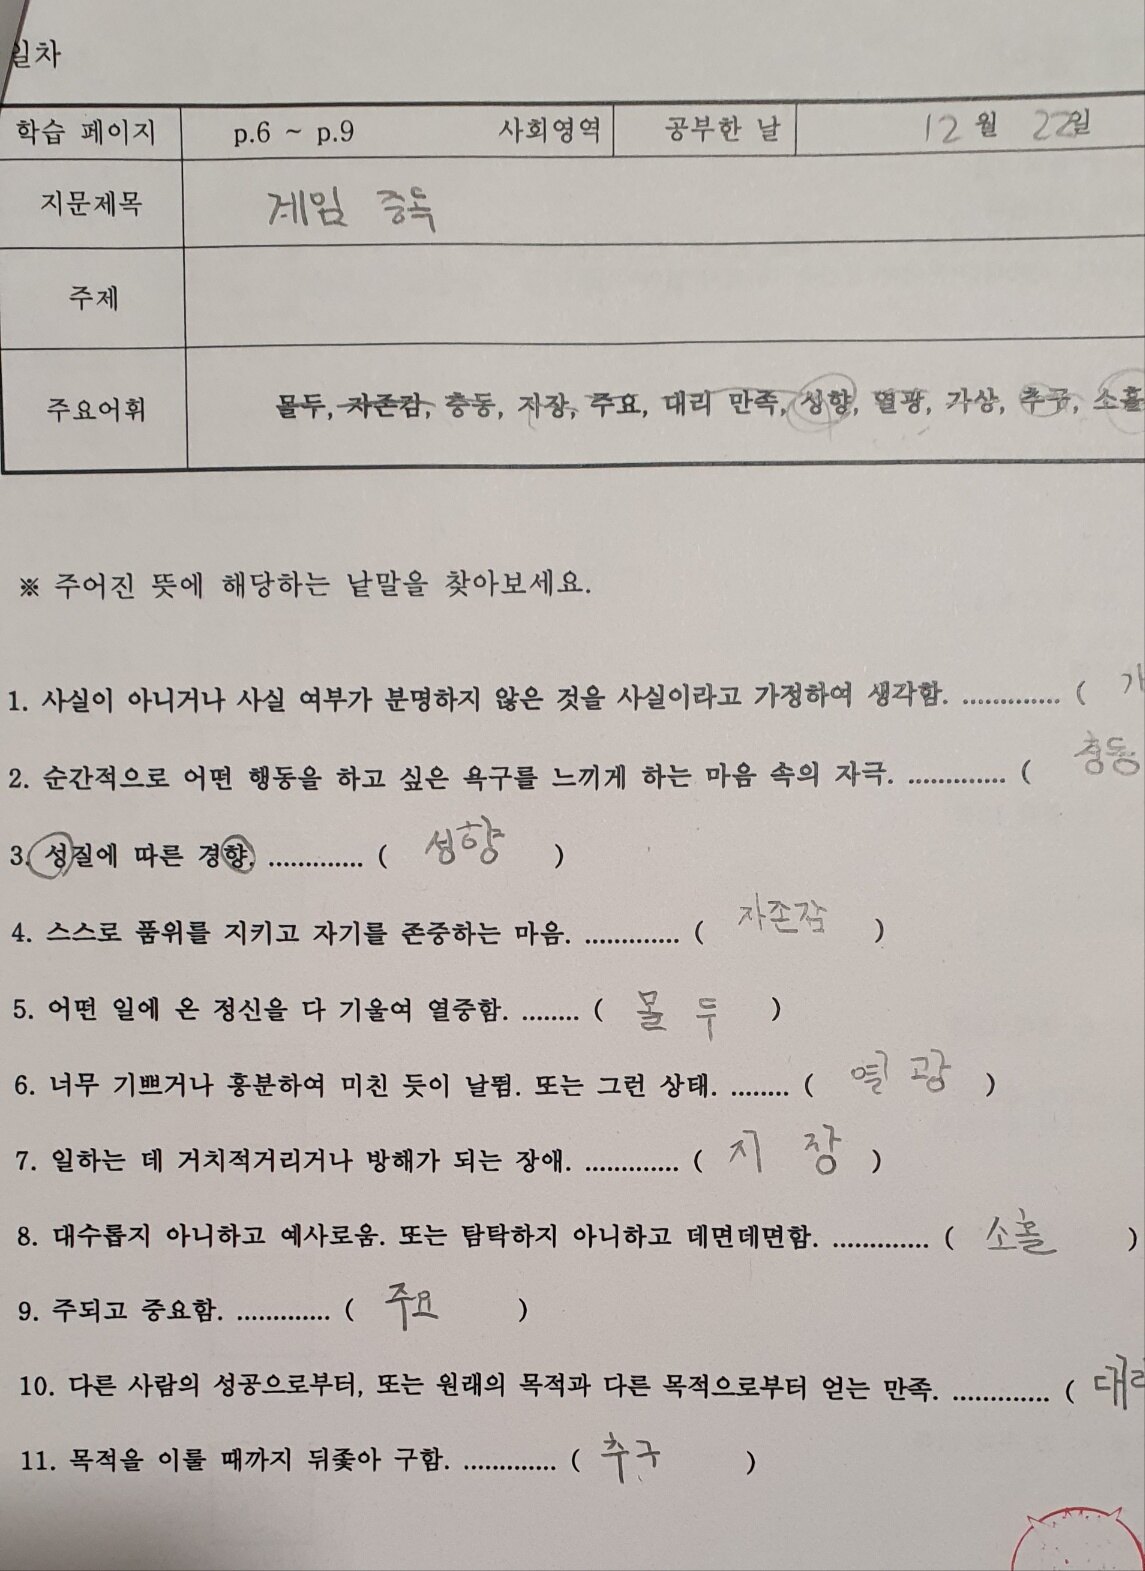 일차
학습 페이지 p.6 ~ p.9 사회영역 공부한 날 12월 22일
지문제목 게임 중독
주제
주요어휘 몰두, 자존감, 충동, 지장, 주요, 대리 만족, 성향, 열광, 가상, 추구, 소홀
※ 주어진 뜻에 해당하는 낱말을 찾아보세요.
1. 사실이 아니거나 사실 여부가 분명하지 않은 것을 사실이라고 가정하여 생각함. ............. ( 가
2. 순간적으로 어떤 행동을 하고 싶은 욕구를 느끼게 하는 마음 속의 자극. ............. ( 충동
3. 성질에 따른 경향. ............. ( 성향 )
4. 스스로 품위를 지키고 자기를 존중하는 마음. ............. ( 자존감 )
5. 어떤 일에 온 정신을 다 기울여 열중함. ........ ( 몰 두 )
6. 너무 기쁘거나 흥분하여 미친 듯이 날뜀. 또는 그런 상태. ........ ( 열 광 )
7. 일하는 데 거치적거리거나 방해가 되는 장애. ............. ( 지 장 )
8. 대수롭지 아니하고 예사로움. 또는 탐탁하지 아니하고 데면데면함. ............. ( 소홀 )
9. 주되고 중요함. ............. ( 주요 )
10. 다른 사람의 성공으로부터, 또는 원래의 목적과 다른 목적으로부터 얻는 만족. ............. ( 대리
11. 목적을 이룰 때까지 뒤좇아 구함. ............. ( 추구 )